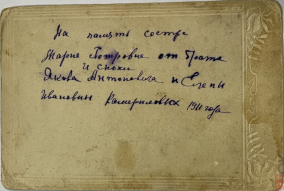 На память сестре
Марие Петровне от Брата
и снохи
Якова Антоновича и Елены
Ивановны 1911 года